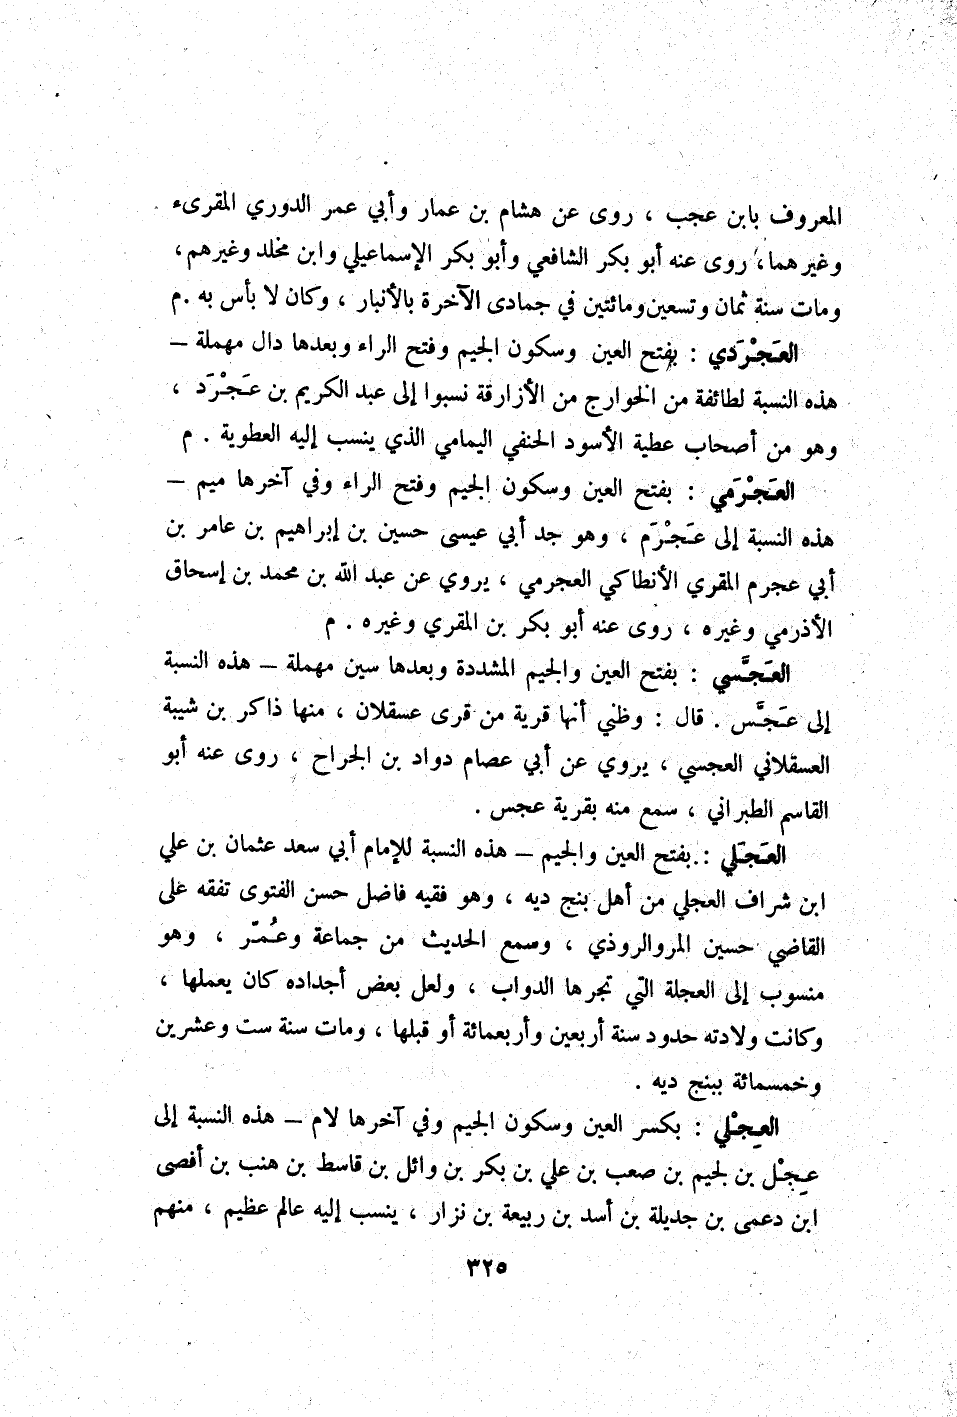 المعروف بابن عجب ، روى عن هشام بن عمار وأبي عمر الدوري المقرىء
وغيرهما، روى عنه أبو بكر الشافعي وأبو بكر الإسماعيلي وابن مخلد وغيرهم،
ومات سنة ثمان وتسعين ومائتين في جمادى الآخرة بالأنبار ، وكان لا بأس به .م
العَجْرَدي : بفتح العين وسكون الجيم وفتح الراء وبعدها دال مهملة –
هذه النسبة لطائفة من الخوارج من الأزارقة نسبوا إلى عبد الكريم بن عَجْرَد ،
وهو من أصحاب عطية الأسود الحنفي اليمامي الذي ينسب إليه العطوية . م
العَجْرَمي : بفتح العين وسكون الجيم وفتح الراء وفي آخرها ميم –
هذه النسبة إلى عَجْرَم ، وهو جد أبي عيسى حسين بن إبراهيم بن عامر بن
أبي عجرم المقري الأنطاكي العجرمي ، يروي عن عبد الله بن محمد بن إسحاق
الأذرمي وغيره ، روى عنه أبو بكر بن المقري وغيره . م
العَجَّسي : بفتح العين والجيم المشددة وبعدها سين مهملة – هذه النسبة
إلى عَجَّس . قال : وظني أنها قرية من قرى عسقلان ، منها ذاكر بن شيبة
العسقلاني العجسي ، يروي عن أبي عصام دواد بن الجراح ، روى عنه أبو
القاسم الطبراني ، سمع منه بقرية عجس .
العَجَلي : بفتح العين والجيم – هذه النسبة للإمام أبي سعد عثمان بن علي
ابن شراف العجلي من أهل بنج ديه ، وهو فقيه فاضل حسن الفتوى تفقه على
القاضي حسين المروالروذي ، وسمع الحديث من جماعة وعُمّر ، وهو
منسوب إلى العجلة التي تجرها الدواب ، ولعل بعض أجداده كان يعملها ،
وكانت ولادته حدود سنة أربعين وأربعمائة أو قبلها ، ومات سنة ست وعشرين
وخمسمائة ببنج ديه .
العِجْلي : بكسر العين وسكون الجيم وفي آخرها لام – هذه النسبة إلى
عِجْل بن لجيم بن صعب بن علي بن بكر بن وائل بن قاسط بن هنب بن أفصى
ابن دعمى بن جديلة بن أسد بن ربيعة بن نزار ، ينسب إليه عالم عظيم ، منهم
٣٢٥